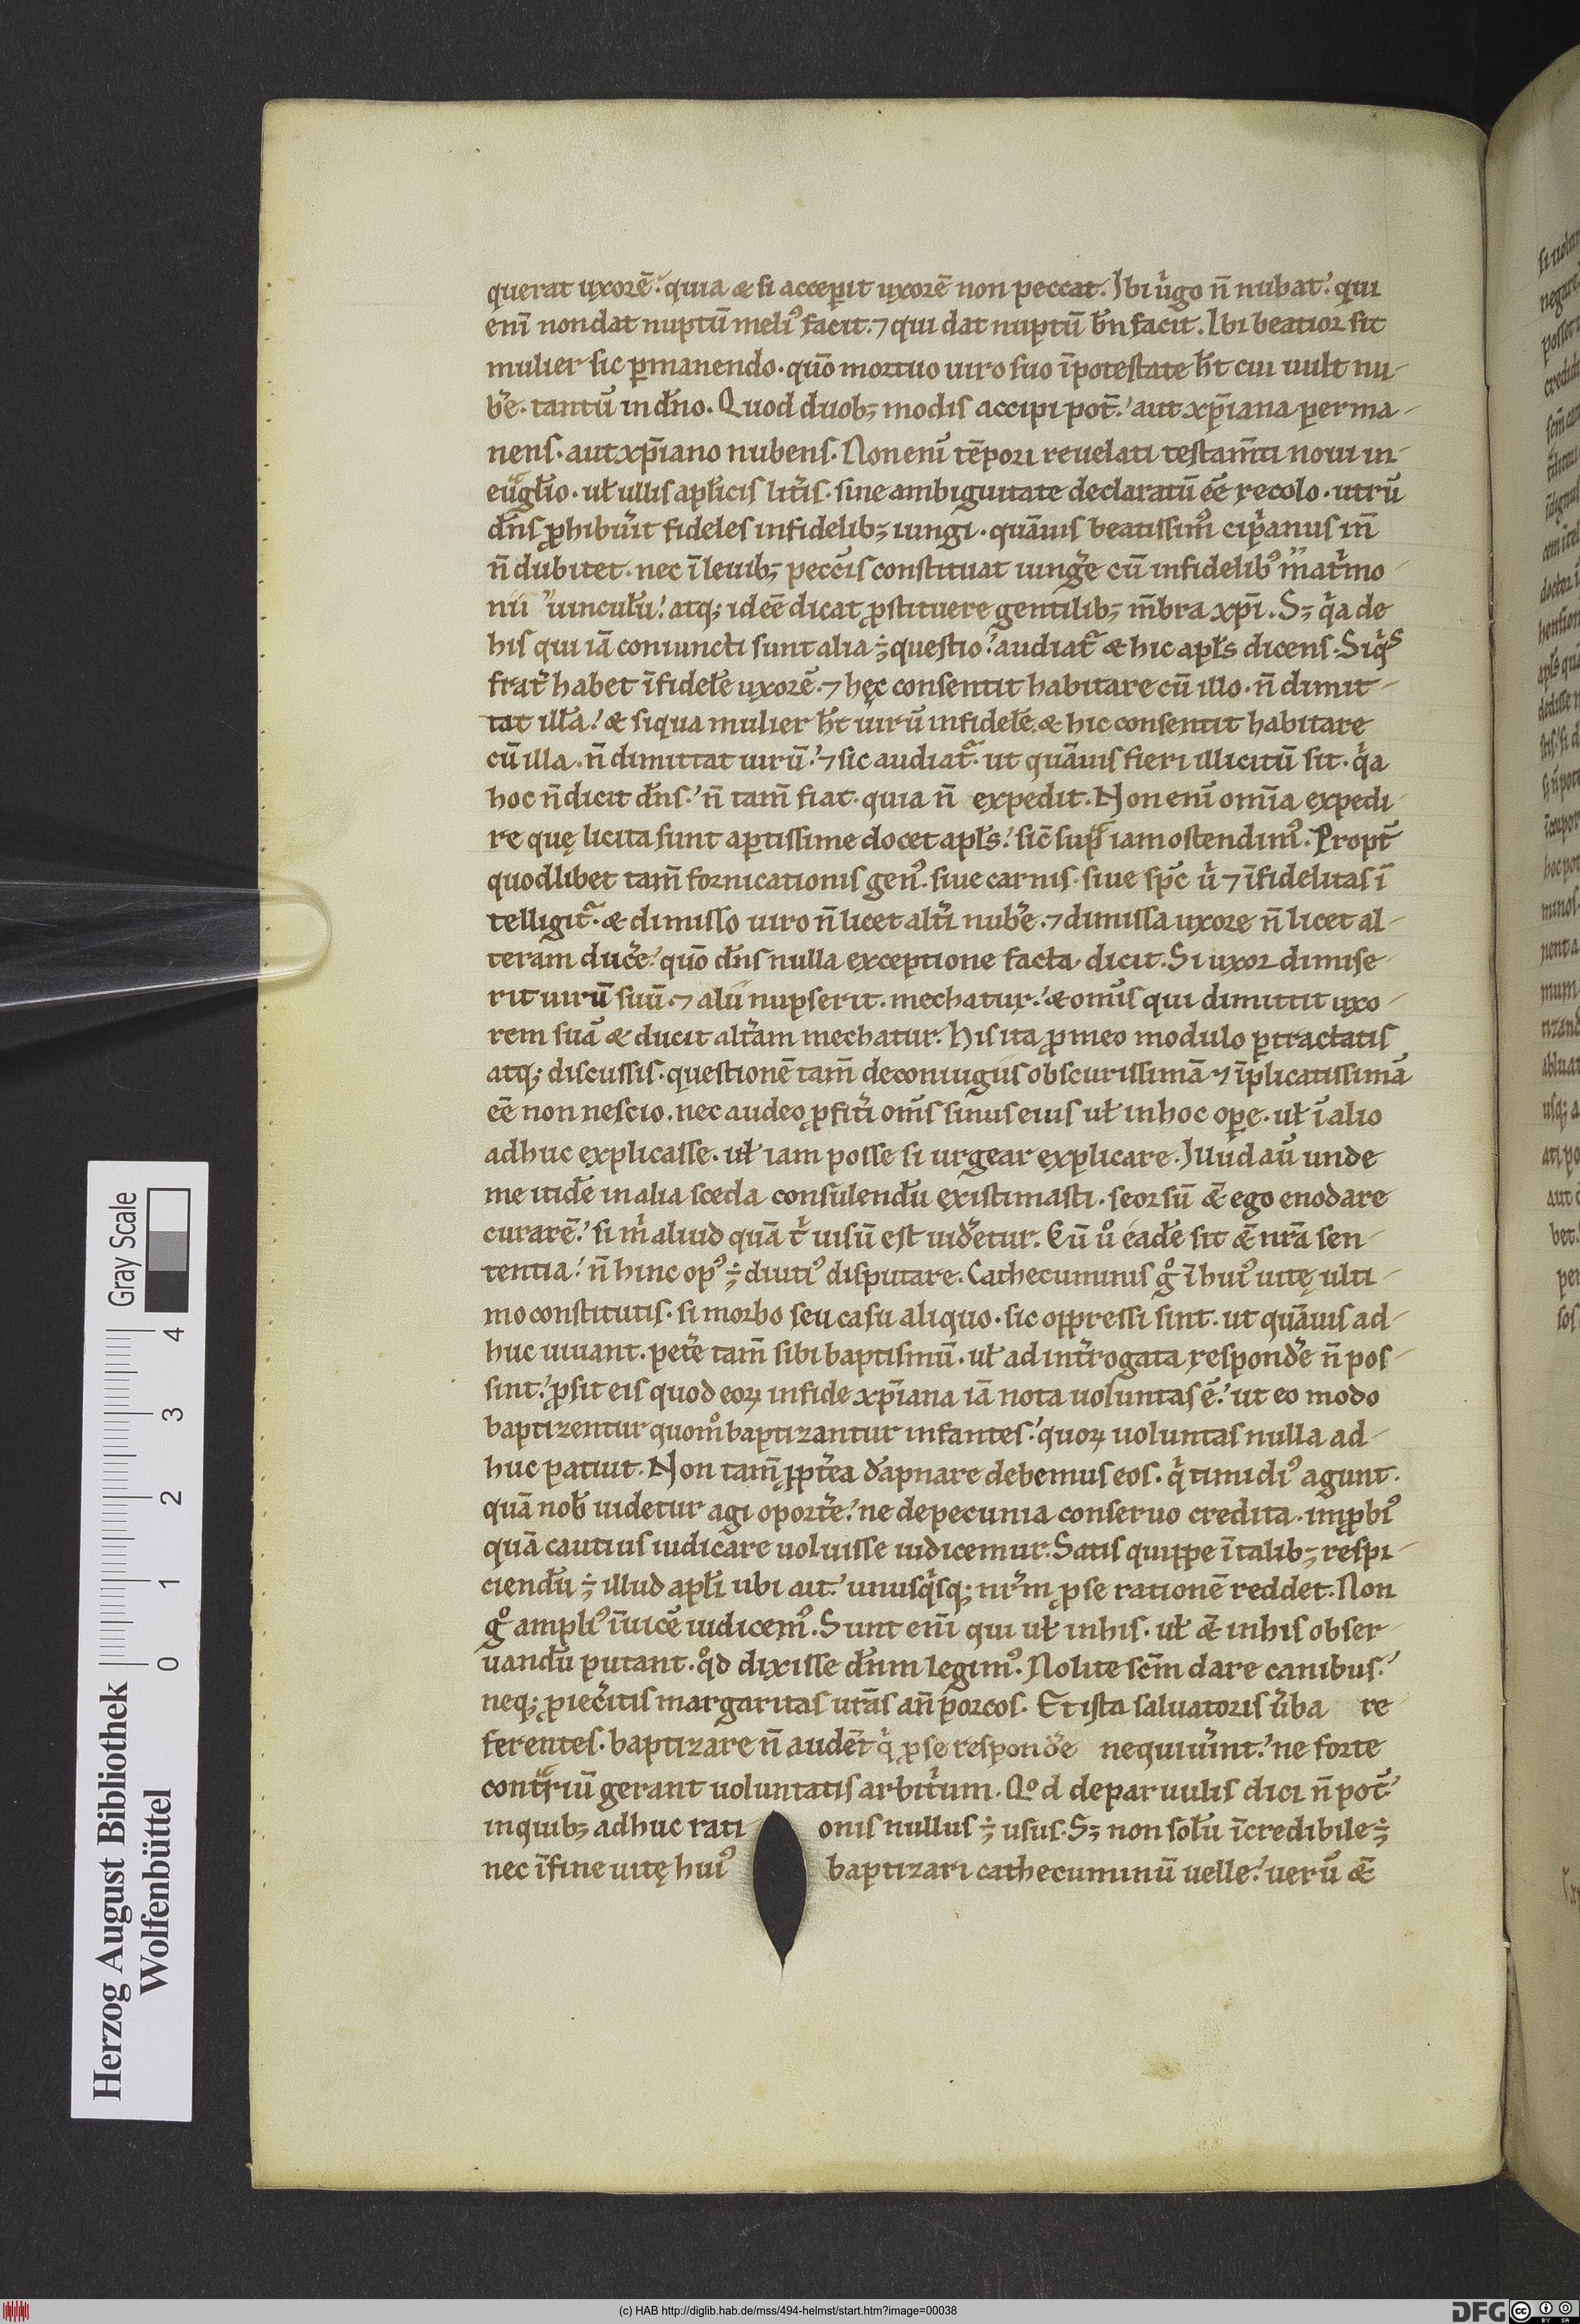 querat uxorē. quia & si acceperit uxorē non peccat. Ibi ũgo n̄ nubat. qui
enī non dat nuptū meliꝰ facit. ⁊ qui dat nuptū bn̄ facit. Ibi beatior fit
mulier sic ꝑmanendo. quō mortuo uiro suo ī potestate hт̄ cui uult nu-
b̃e. tantū in dn̄o. Quod duobꝫ modis accipi pot̄. aut xp̄iana perma-
nens. aut xp̄iano nubens. Non enī tēpori reuelati testam̄ti noui in
euglio. ul̄ ullis apl̄icis litr̄is. sine ambiguitate declaratū eē recolo. utrū
dn̄s ꝓhibuīt fideles infidelibꝫ iungi. quāuis beatissimꝰ cipanus in̄
n̄ dubitet. nec ī leuibꝫ pecc̄is constituat iung̃e cū infidelibꝰ mat̃mo
nii uinculū. atqꝫ ideē dicat ꝓstituere gentilibꝫ m̄bra xp̄i. Sꝫ qͥa de
his qui iā coniuncti sunt alia ÷ questio. audiat̃ & hic apl̄s dicens. Siqͥs
frat̃ habet īfidel̄e uxorē. ⁊ hęc consentit habitare cū illo. n̄ dimit-
tat ill̄a. & siqua mulier hт̄ uirū infidel̄e. & hic consentit habitare
cū illa. n̄ dimittat uirū. ⁊ sic audiat̃. ut quāuis fieri illicitū sit. qͥa
hoc n̄ dicit dn̄s. n̄ tam̄ fiat. quia n̄ expedit. Non enī omīa expedi-
re quę licita sunt aꝑtissime docet apl̄s. sic̄ sup̃ iam ostendimꝰ. Propt̃
quodlibet tam̄ fornicationis genꝰ. siue carnis. siue sp̄c ũ ⁊ īfidelitas ī
telligit̃. & dimisso uiro n̄ licet alt̃i nub̃e. ⁊ dimissa uxore n̄ licet al-
teram duc̃e. quō dn̄s nulla exceptione facta dicit. Si uxor dimise-
rit uirū suū. ⁊ alii nupserit. mechatur. & omīs qui dimittit uxo-
rem suā & ducit alt̃am mechatur. His ita ꝓ meo modulo ꝑtractatis
atqꝫ discussis. questionē tam̄ de coniugiis obscurissimā ⁊ īplicatissimā
eē non nescio. nec audeo ꝓfit̃i om̄s sinus eius ul̄ in hoc oꝑe. ul̄ ī alio
adhuc explicasse. ul̄ iam posse si urgear explicare. Illud aū unde
me itidē in alia sceda consulendū existimasti. seorsū &̄ ego enodare
curarē. si m̃ aliud quā t̃ uisū est uid̃etur. Cū uͦ eadē sit &̄ nr̄a sen-
tentia. n̄ hinc opꝰ ÷ diutiꝰ disputare. Cathecuminis gͦ ī huiꝰ uitę ulti-
mo constitutis. si morbo seu casu aliquo. sic oppressi sint. ut quāuis ad-
huc uiuant. pet̃e tam̄ sibi baptismū. ul̄ ad int̃rogata respond̃e n̄ pos-
sint. ꝓsit eis quod eoꝝ in fide xp̄iana iā nota uoluntas ē. ut eo modo
baptizentur quomͦ baptizantur infantes. quoꝝ uoluntas nulla ad-
huc patuit. Non tam̄ ꝓpt̃ea dāpnare debemus eos. qͥ timidiꝰ agunt.
quā nob̄ uidetur agi oport̃e. ne de pecunia conseruo credita. imꝓbiꝰ
quā cautius iudicare uoluisse iudicemur. Satis quippe ī talibꝫ respi-
ciendū ÷ illud apl̄i ubi ait. unusqͥsqꝫ nr̃m ꝓ se rationē reddet. Non
gͦ ampliꝰ īuicē iudicemꝰ. Sunt enī qui ul̄ in his. ul̄ &̄ in his obser-
uandū putant. qͦd dixisse dn̄m legimꝰ. Nolite sc̄m dare canibus.
neqꝫ ꝓiec̃itis margaritas ur̄as an̄ porcos. Et ista saluatoris ũba re-
ferentes. baptizare n̄ audēt qͥ ꝓ se respond̃e nequiũnt. ne forte
contr̃iū gerant uoluntatis arbit̃um. Qͦd de paruulis dici n̄ pot̃
in quibꝫ adhuc rati onis nullus ÷ usus. Sꝫ non solū īcredibile ÷
nec ī fine uitę huiꝰ baptizari cathecuminū uelle. uerū &̄
Herzog August Bibliothek
Wolfenbüttel
Gray Scale
0 1 2 3 4
(c) HAB http://diglib.hab.de/mss/494-helmst/start.htm?image=00038
DFG
cc BY SA